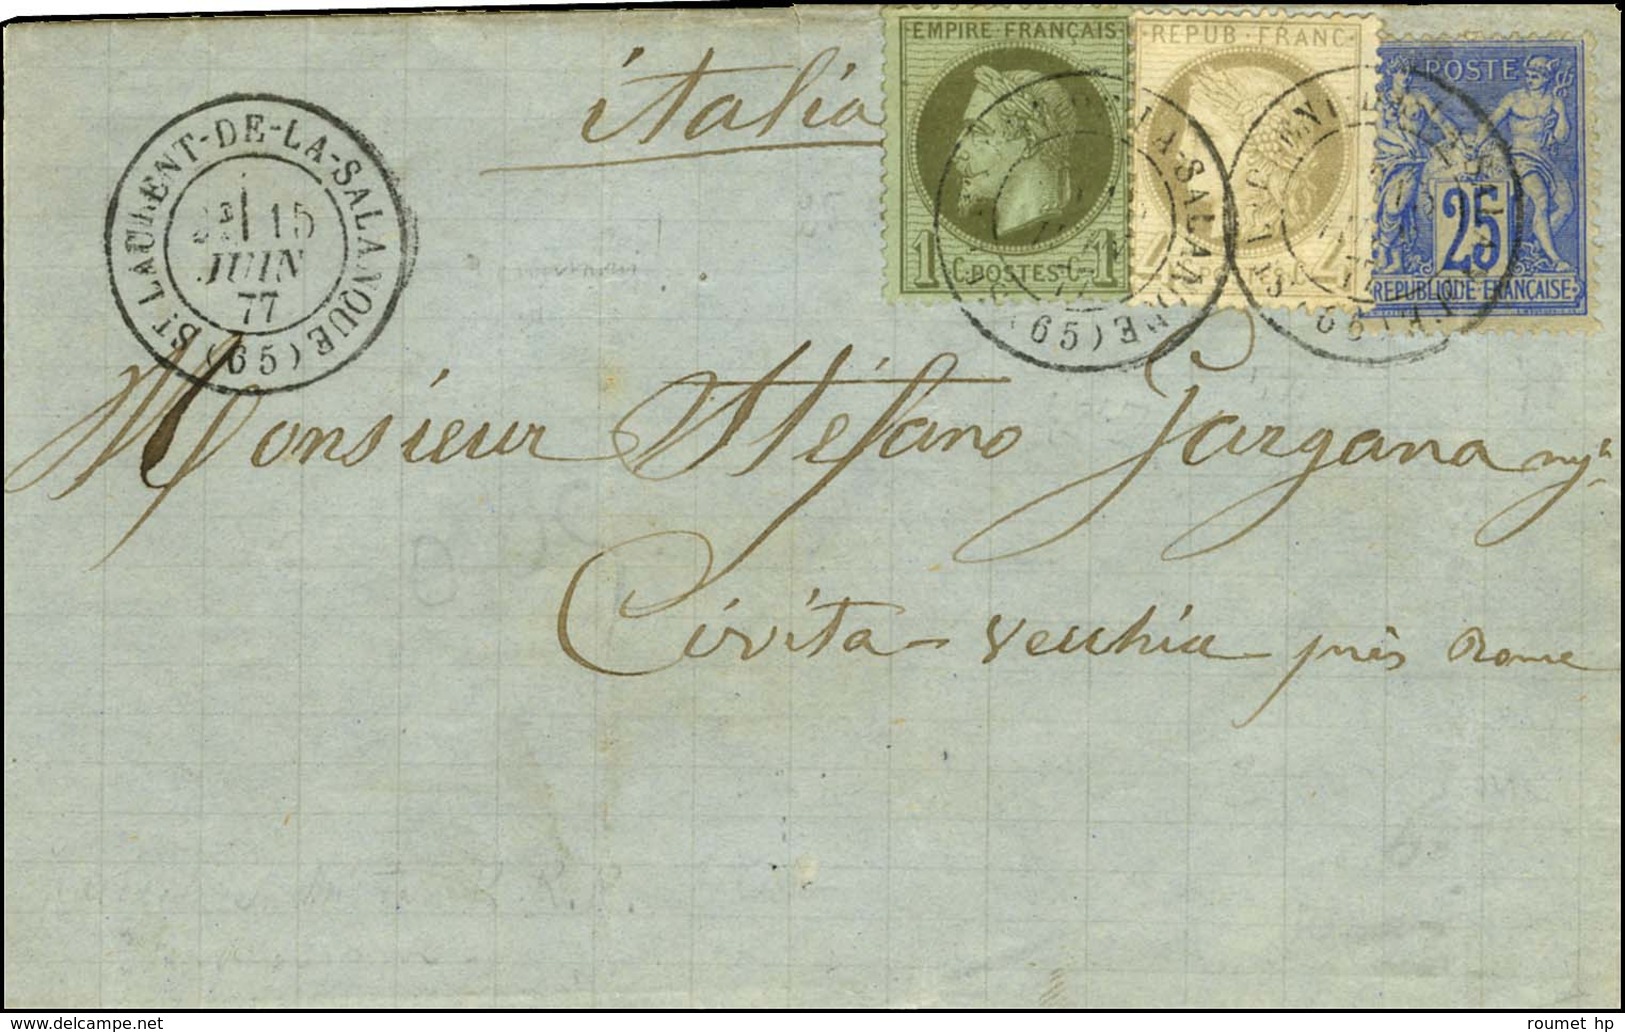 italia
EMPIRE FRANÇAIS
1 C. POSTES C. 1
REPUB. FRANC.
POSTE
25
REPUBLIQUE FRANÇAISE
ST LAURENT-DE-LA-SALANQUE (65)
15
JUIN
77
LA-SALANQUE (65)
77
Monsieur Stefano Gargana
Civita-Vecchia près Rome
R.R.
roumet hp